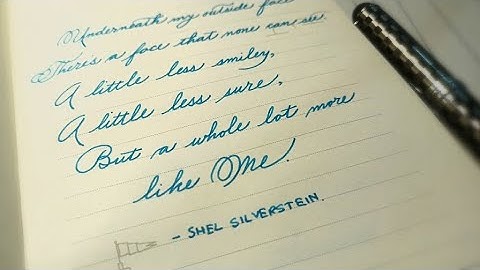 Underneath my outside face
There's a face that none can see.
A little less smiley,
A little less sure,
But a whole lot more
like Me.
- SHEL SILVERSTEIN.